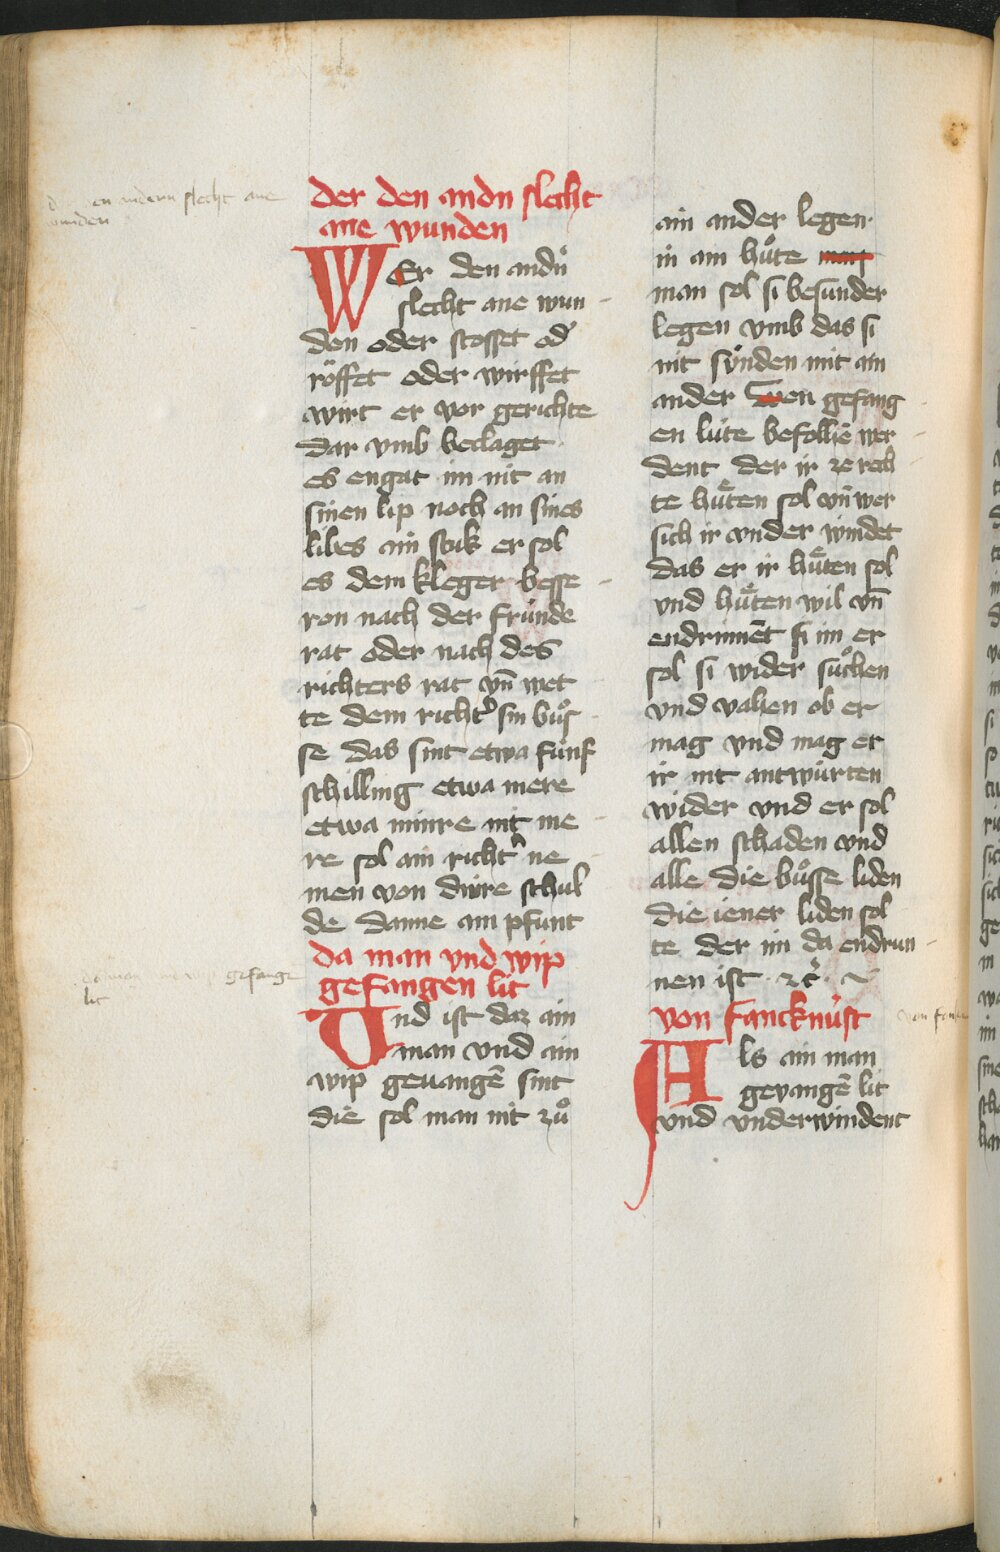 der den andn slecht
ane wunden
WEr den andn
slecht ane wun
den oder stosset od
röffet oder wirffet
wirt er vor gerichte
dar vmb beclaget
es engat im nit an
sinen lip noch an sines
libes ain stuk er sol
es dem kleger besse
ron nach der fründe
rat oder nach des
richters rat vn̄ wet
te dem richt̾ sin bůs
se das sint etwa fünf
schilling etwa mere
etwa minre nit me
re sol ain richt̾ ne
men von diure schul
de danne ain pfunt
da man vnd wip
gefangen lit
Vnd ist daz ain
man vnd ain
wip geuangē sint
die sol man nit zů
ain ander legen
in ain hůte
man sol si besunder
legen vmb das si
nit sünden mit ain
ander Wen gefang
en lüte befollē wer
dent der ir ze rech
te hůten sol vn̄ wer
sich ir vnder windet
das er ir hůten sol
vnd hůten wil vn̄
endrinnēt si im er
sol si wider sůchen
vnd vahen ob er
mag vnd mag er
ir nit antwürten
wider vnd er sol
allen schaden vnd
alle die bůsse liden
die iener liden sol
te der im da endrun
nen ist ⁊c̄
von fancknüst
Als ain man
gevangē lit
vnd vnderwindent